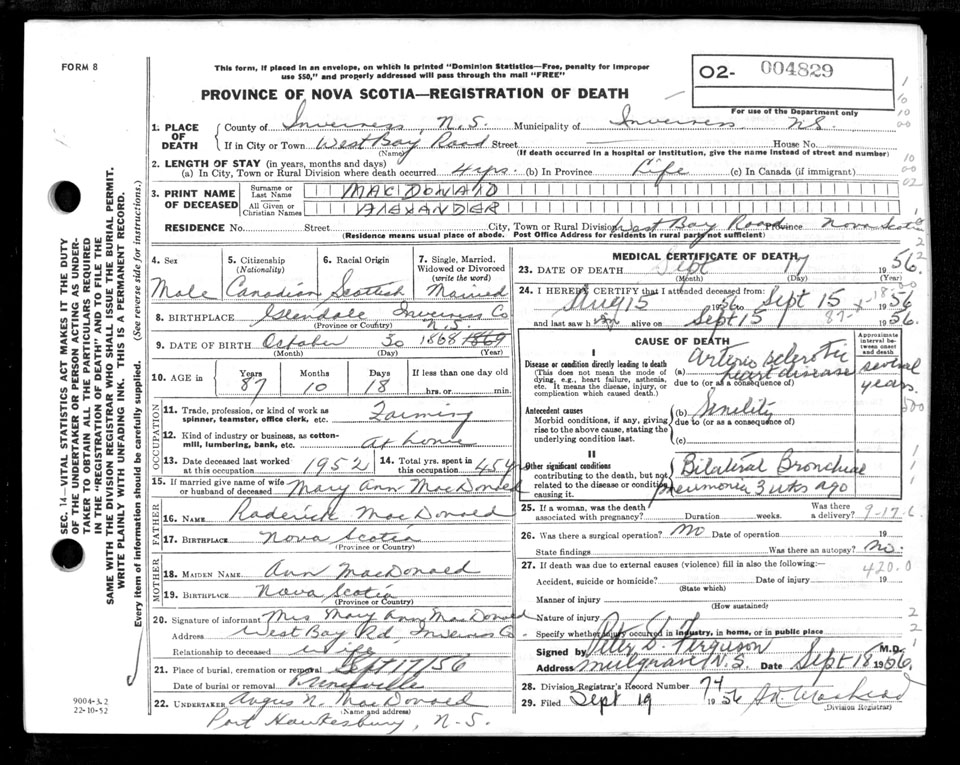 FORM 8
This form, if placed in an envelope, on which is printed "Dominion Statistics—Free, penalty for improper
use $50," and properly addressed will pass through the mail "FREE"
O2- 004829
PROVINCE OF NOVA SCOTIA—REGISTRATION OF DEATH
For use of the Department only
1. PLACE OF DEATH
County of Inverness, N.S. Municipality of Inverness NS.
If in City or Town West Bay Road Street House No.
(Name) (If death occurred in a hospital or institution, give the name instead of street and number)
2. LENGTH OF STAY (in years, months and days)
(a) In City, Town or Rural Division where death occurred 4 yrs. (b) In Province Life (c) In Canada (if immigrant)
3. PRINT NAME OF DECEASED
Surname or Last Name MACDONALD
All Given or Christian Names ALEXANDER
RESIDENCE No. Street City, Town or Rural Division West Bay Road Province Nova Scotia
(Residence means usual place of abode. Post Office Address for residents in rural parts not sufficient)
4. Sex Male
5. Citizenship (Nationality) Canadian
6. Racial Origin Scottish
7. Single, Married, Widowed or Divorced (write the word) Married
8. BIRTHPLACE Glendale Inverness Co N.S.
(Province or Country)
9. DATE OF BIRTH October 30 1868 1869
(Month) (Day) (Year)
10. AGE in Years 87 Months 10 Days 18 If less than one day old hrs. or min.
OCCUPATION
11. Trade, profession, or kind of work as spinner, teamster, office clerk, etc. Farming
12. Kind of industry or business, as cotton-mill, lumbering, bank, etc. At home
13. Date deceased last worked at this occupation 1952
14. Total yrs. spent in this occupation 45 yrs
15. If married give name of wife or husband of deceased Mary Ann MacDonald
FATHER
16. NAME Roderick MacDonald
17. BIRTHPLACE Nova Scotia
(Province or Country)
MOTHER
18. MAIDEN NAME Ann MacDonald
19. BIRTHPLACE Nova Scotia
(Province or Country)
20. Signature of informant Mrs Mary Ann MacDonald
Address West Bay Rd, Inverness Co
Relationship to deceased wife
21. Place of burial, cremation or removal Sept 17/56
Date of burial or removal Princeville
22. UNDERTAKER Angus N. MacDonald
(Name and address)
Port Hawkesbury, N.S.
MEDICAL CERTIFICATE OF DEATH
23. DATE OF DEATH Sept 17 1956
(Day) (Year)
24. I HEREBY CERTIFY that I attended deceased from:
Aug 15 1956 to Sept 15 1956
and last saw him alive on Sept 15 1956.
CAUSE OF DEATH
Approximate interval between onset and death
I
Disease or condition directly leading to death
(This does not mean the mode of dying, e.g., heart failure, asthenia, etc. It means the disease, injury, or complication which caused death.)
(a) Arterio sclerotic heart disease several years.
due to (or as a consequence of)
Antecedent causes
Morbid conditions, if any, giving rise to the above cause, stating the underlying condition last.
(b) Senility
due to (or as a consequence of)
(c)
II
Other significant conditions
contributing to the death, but not related to the disease or condition causing it.
Bilateral Bronchial pneumonia 3 wks ago
25. If a woman, was the death associated with pregnancy? Duration weeks. Was there a delivery?
26. Was there a surgical operation? No Date of operation 19
State findings Was there an autopsy? No.
27. If death was due to external causes (violence) fill in also the following:—
420.0
Accident, suicide or homicide? Date of injury 19
(State which)
Manner of injury
(How sustained)
Nature of injury
Specify whether injury occurred in industry, in home, or in public place
Signed by Peter D. Ferguson M.D.
Address Mulgrave N.S. Date Sept 18 1956.
28. Division Registrar's Record Number 74
29. Filed Sept 19 1956
(Division Registrar)
SEC. 14—VITAL STATISTICS ACT MAKES IT THE DUTY
OF THE UNDERTAKER OR PERSON ACTING AS UNDER-
TAKER TO OBTAIN ALL THE PARTICULARS REQUIRED
IN THE "REGISTRATION OF DEATH" AND TO FILE THE
SAME WITH THE DIVISION REGISTRAR WHO SHALL ISSUE THE BURIAL PERMIT.
WRITE PLAINLY WITH UNFADING INK. THIS IS A PERMANENT RECORD.
Every item of information should be carefully supplied. (See reverse side for instructions.)
9004-3.2
22-10-52